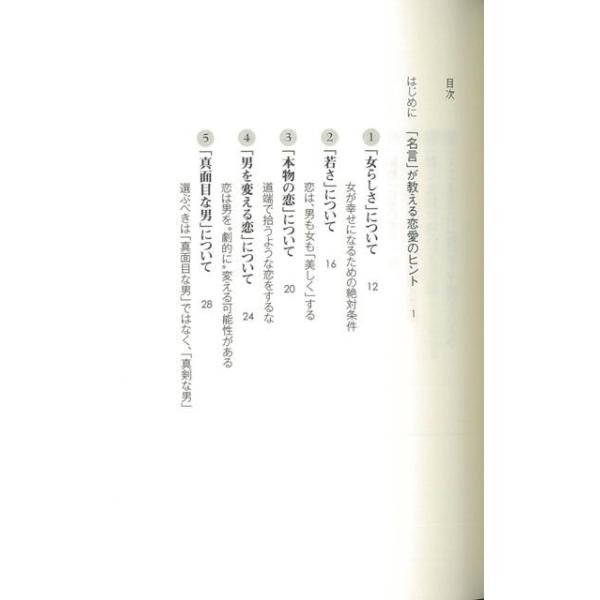 目次
はじめに 「名言」が教える恋愛のヒント 1
1 「女らしさ」について 12
女が幸せになるための絶対条件
2 「若さ」について 16
恋は、男も女も「美しく」する
3 「本物の恋」について 20
道端で拾うような恋をするな
4 「男を変える恋」について 24
恋は男を〝劇的に〟変える可能性がある
5 「真面目な男」について 28
選ぶべきは「真面目な男」ではなく、「真剣な男」